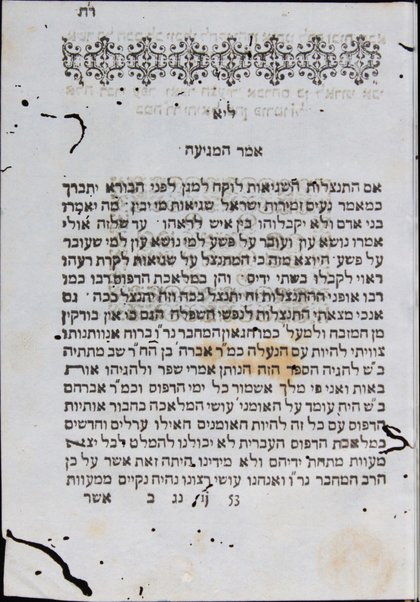 ליא
אמר המגיעה
אם התנצלות השגיאות לוקח למגן לפני הבורא יתברך
במאמר נעים זמירות ישראל שגיאות מי יבין מה יאמרו
בני אדם ולא יקבלוהו בין איש לראהו ער שלזה אולי
אמרו נושא עון ועובר על פשע למי נושא עון למי שעובר
על פשע היוצא מזה כי המתנצל על שגיאות לקרת רעהו
ראוי לקבלו בשתי ידים והן במלאכת הדפוס רבו כמו
רבו אופני ההתנצלות זה יתנצל בכה וזה יתנצל בככה גם
אנכי מצאתי התנצלות לנפשי השפלה הגם בו אין בודקין
מן המזבח ולמעל כמו הגאון המחבר נר״ו ברוח אנוותנותו
צוויתי להיות עם הנעלה כמ״ר אברה׳ בן הח״ר שב מתתיה
ב״ש להגיה הספר הזה הנותן אמרי שפר ולהגיהו אות
באות ואני פי מלך אשמור כל ימי הדפוס וכמ״ר אברהם
ב״ש היה עומד על האומני׳ עושי המלאכה בחבור אותיות
הדפוס עם כל זה להיות האומנים האילו ערלים וחדשים
במלאכת הדפוס העברית לא יכולנו להמלט לבל יצא
מעוות מתחת ידיהם ולא מידינו היתה זאת אשר על כן
הרב המחבר נר״ו ואנחנו עושי רצונו נהיה נקיים ממעוות
53 נג ב אשר